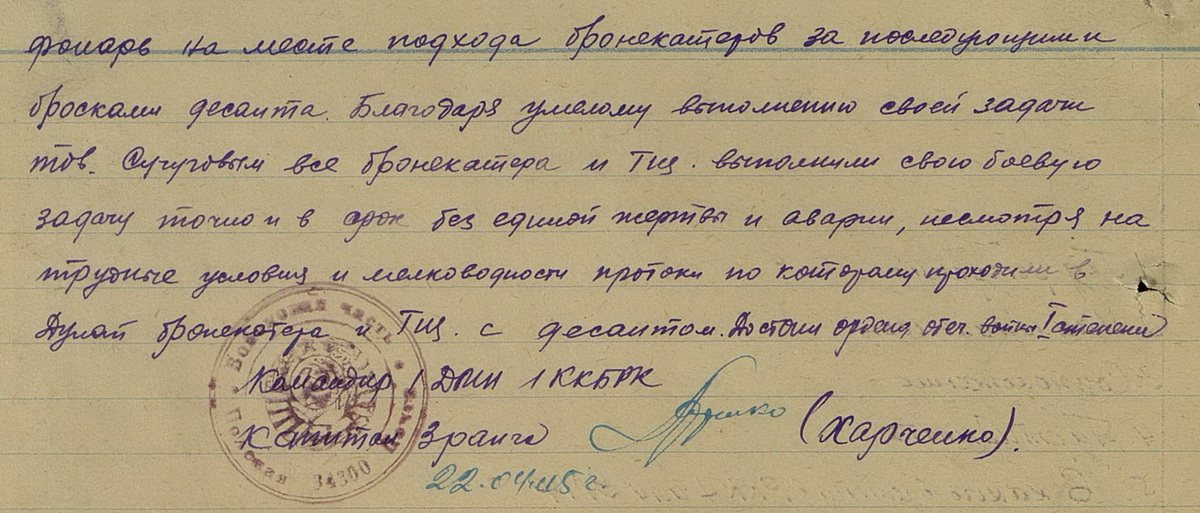 фонарь на месте подхода бронекатеров за последующими
бросками десанта. Благодаря умелому выполнению своей задачи
тов. Сучуговым все бронекатера и ТЩ. выполнили свою боевую
задачу точно и в срок без единой жертвы и аварии, несмотря на
трудные условия и мелководности протоки по которому проходили в
Дунай бронекатера и ТЩ. с десантом. Достоин ордена отеч. войны I степени
Командир 1 ДМН 1 ККБРК
Капитан 3 ранга (Харченко).
22.04.45 г.
Войсковая часть
Полевая почта
34300